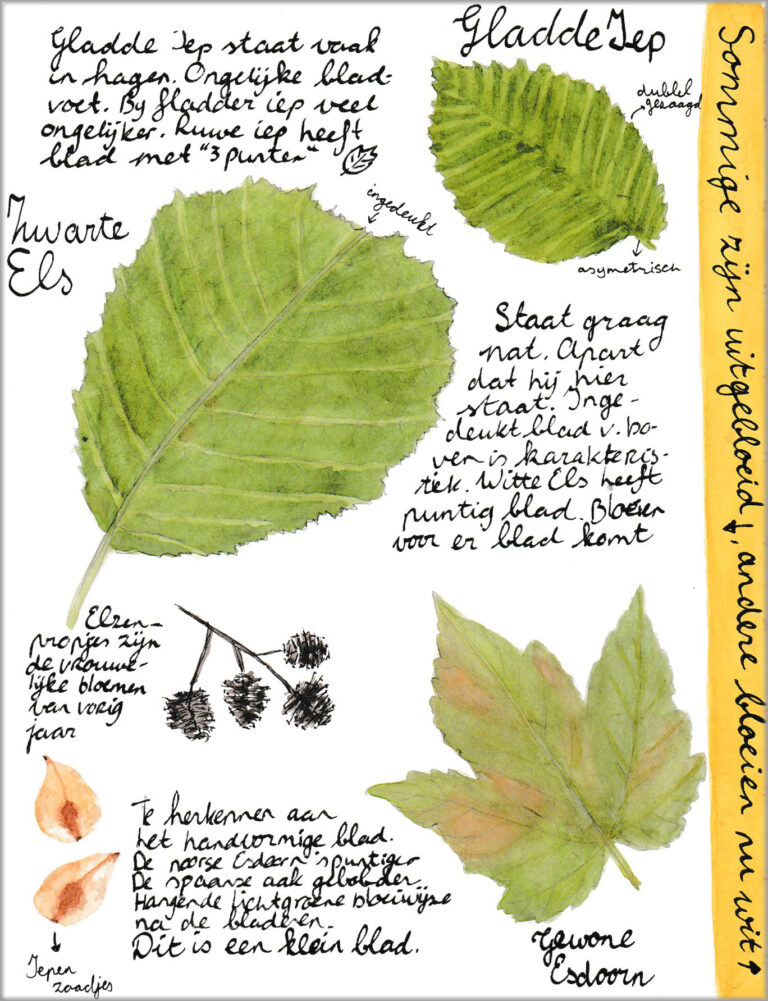 Gladde Iep staat vaak
in hagen. Ongelijke blad-
voet. By fladder iep veel
ongelijker. Ruwe iep heeft
blad met "3 punten"
Gladde Iep
dubbel
gezaagd
asymetrisch
Zwarte
Els
ingedeukt
Staat graag
nat. Apart
dat hij hier
staat. Inge-
deukt blad v. bo-
ven is karakteris-
tiek. Witte Els heeft
puntig blad. Bloeien
voor er blad komt
Elzen-
propjes zijn
de vrouwe-
lijke bloemen
van vorig
jaar
Te herkennen aan
het handvormige blad.
De noorse Esdoorn is puntiger
De spaanse aak gelobder.
Hangende lichtgroene bloeiwijze
na de bladeren.
Dit is een klein blad.
Iepen
zaadjes
Gewone
Esdoorn
Sommige zijn uitgebloeid ↓, andere bloeien nu wit ↑